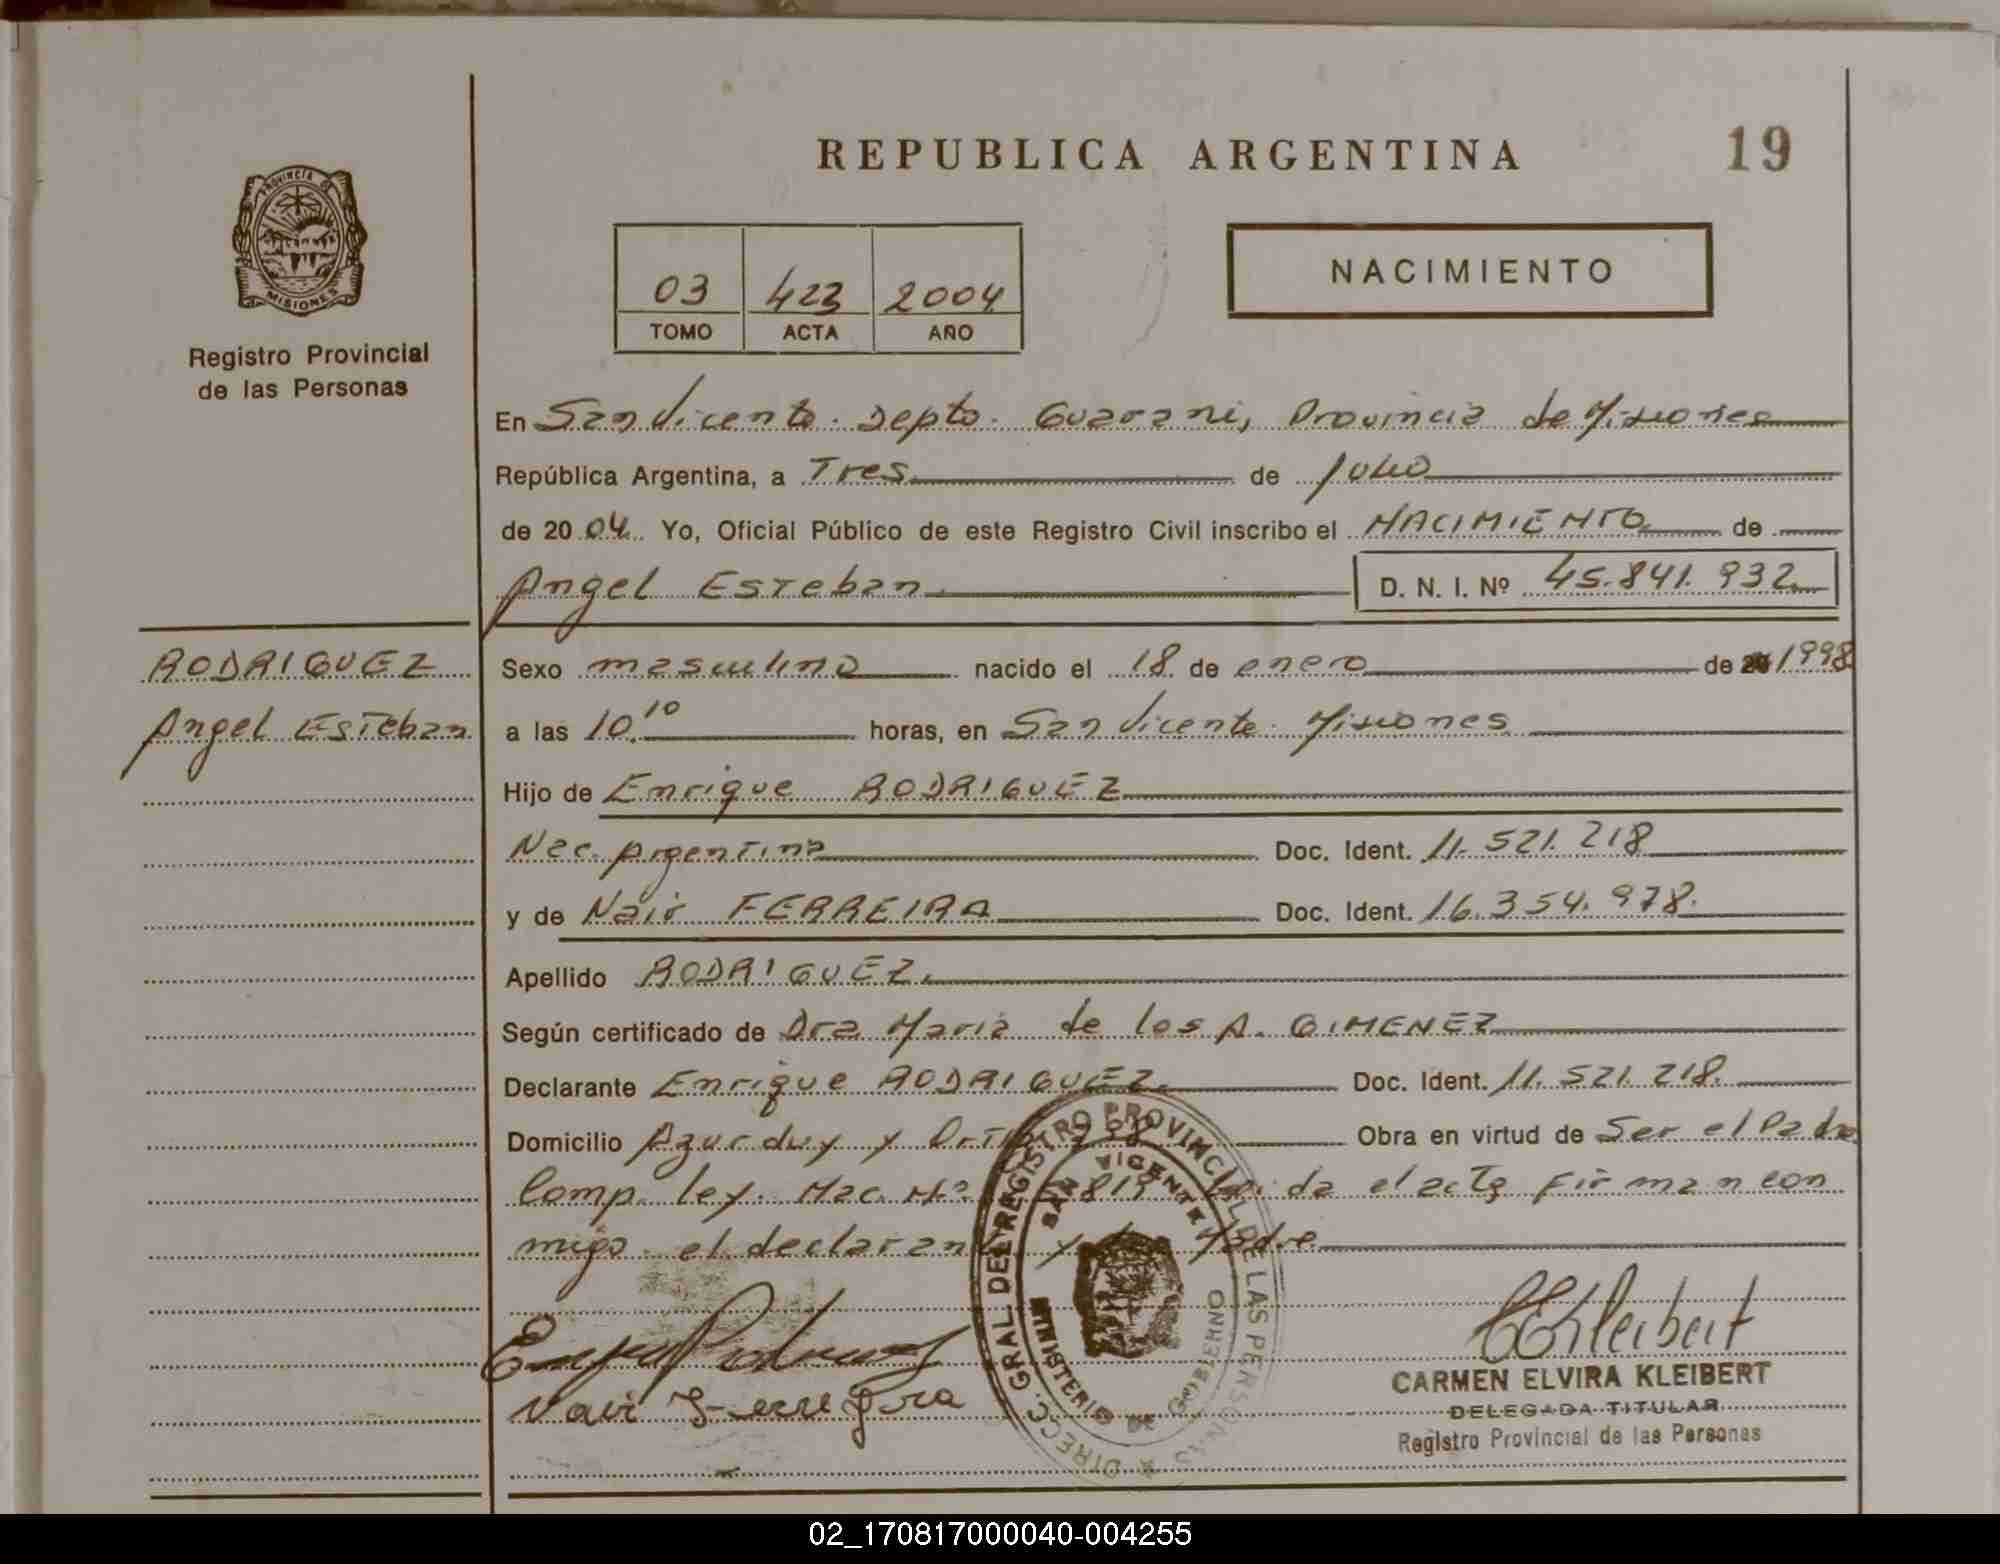 REPUBLICA ARGENTINA
19
PROVINCIA DE
MISIONES
Registro Provincial
de las Personas
03 423 2004
TOMO ACTA AÑO
NACIMIENTO
En San Vicente. Depto. Guarani, Provincia de Misiones
República Argentina, a Tres de Julio
de 2004. Yo, Oficial Público de este Registro Civil inscribo el NACIMIENTO de
Angel Esteban D. N. I. Nº 45.841.932
RODRIGUEZ
Angel Esteban
Sexo masculino nacido el 18 de enero de 1998
a las 10.10 horas, en San Vicente. Misiones
Hijo de Enrique RODRIGUEZ
Nac. Argentina Doc. Ident. 11.521.218
y de Nair FERREIRA Doc. Ident. 16.354.978.
Apellido RODRIGUEZ.
Según certificado de Dra. Maria de los A. GIMENEZ
Declarante Enrique RODRIGUEZ. Doc. Ident. 11.521.218.
Domicilio Azurduy y Obra en virtud de Ser el Padre
Comp. Ley. Nac. Nº da el acta Firman con
migo el declarante y Madre
DIRECC. GRAL DEL REGISTRO PROVINCIAL DE LAS PERSONAS
SAN VICENTE
MINISTERIO DE GOBIERNO
CEKleibert
CARMEN ELVIRA KLEIBERT
DELEGADA TITULAR
Registro Provincial de las Personas
02_170817000040-004255